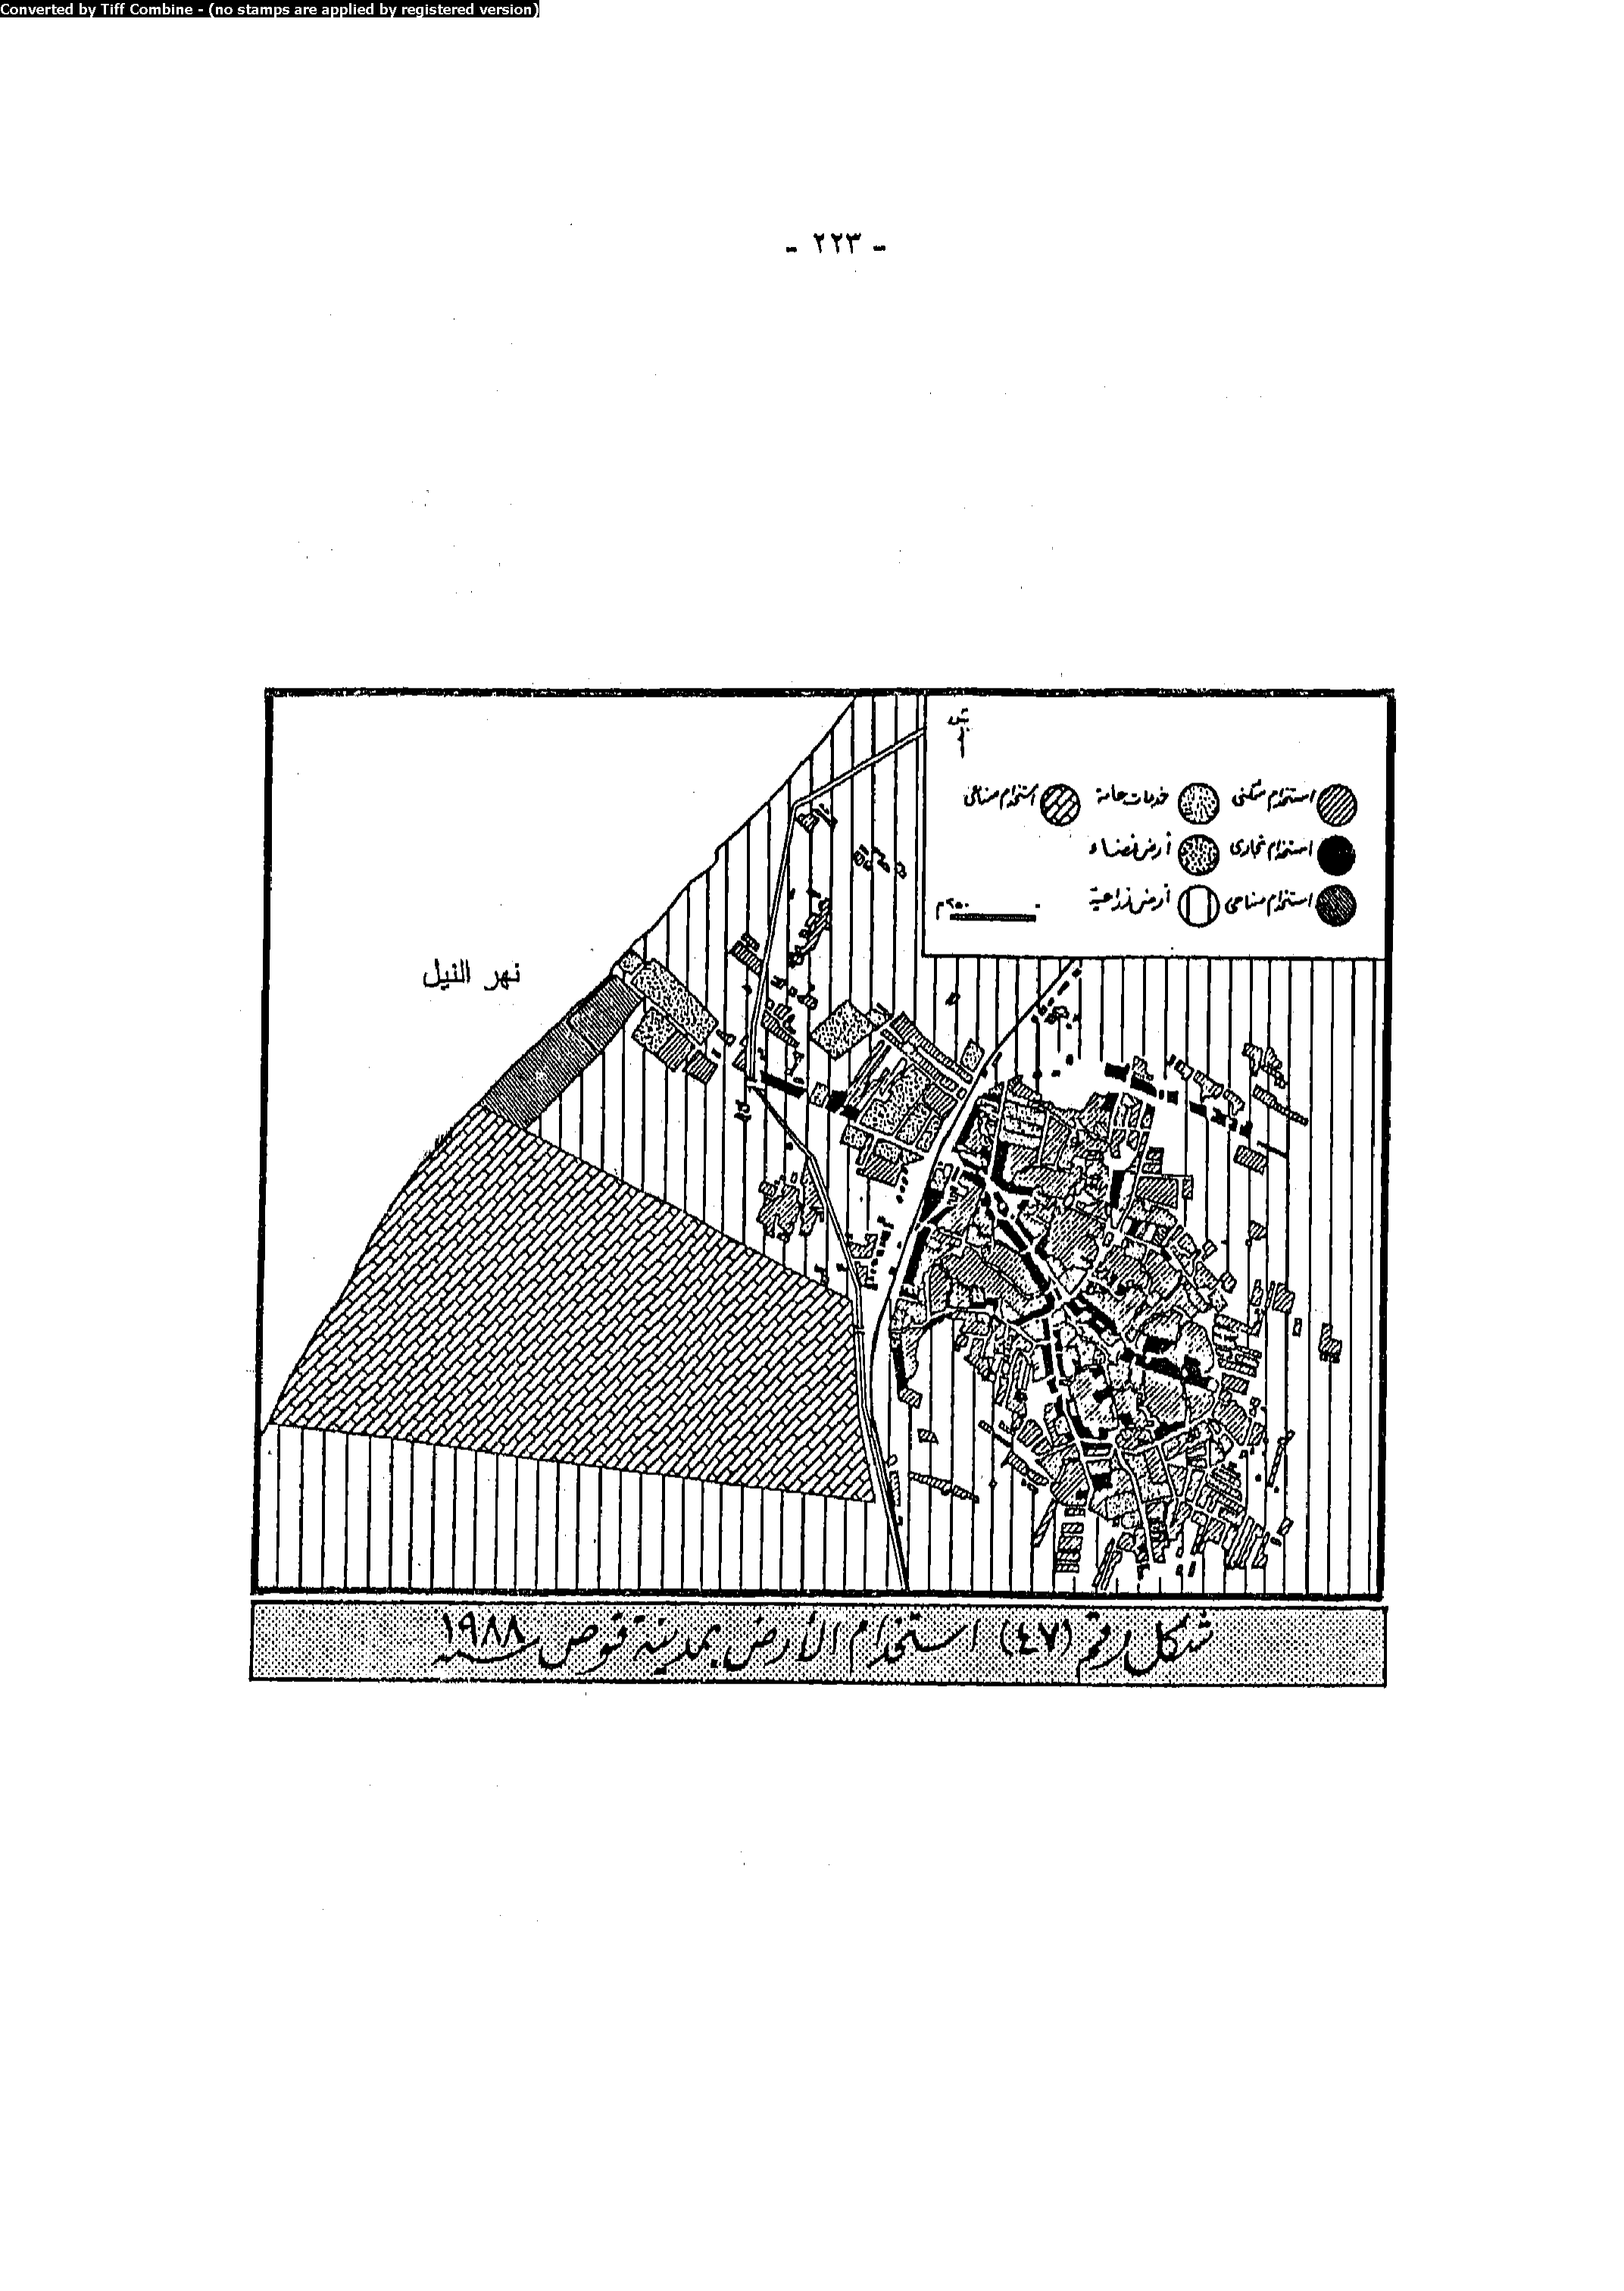 Converted by Tiff Combine - (no stamps are applied by registered version)
- ٢٢٣ -
استخدام سكنى
خدمات عامة
استخدام صناعى
استخدام تجارى
أرض فضاء
استخدام صناعى
أرض زراعية
٠
٢٥٠م
نهر النيل
شكل رقم (٤٧) استخدام الأرض بمدينة قوص سنة ١٩٨٨